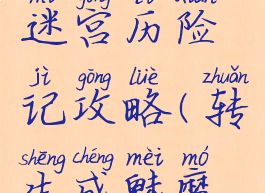 mí gōng lì xiǎn
迷宫历险
jì gōng lüè zhuǎn
记攻略(转
shēng chéng mèi mó
生成魅魔